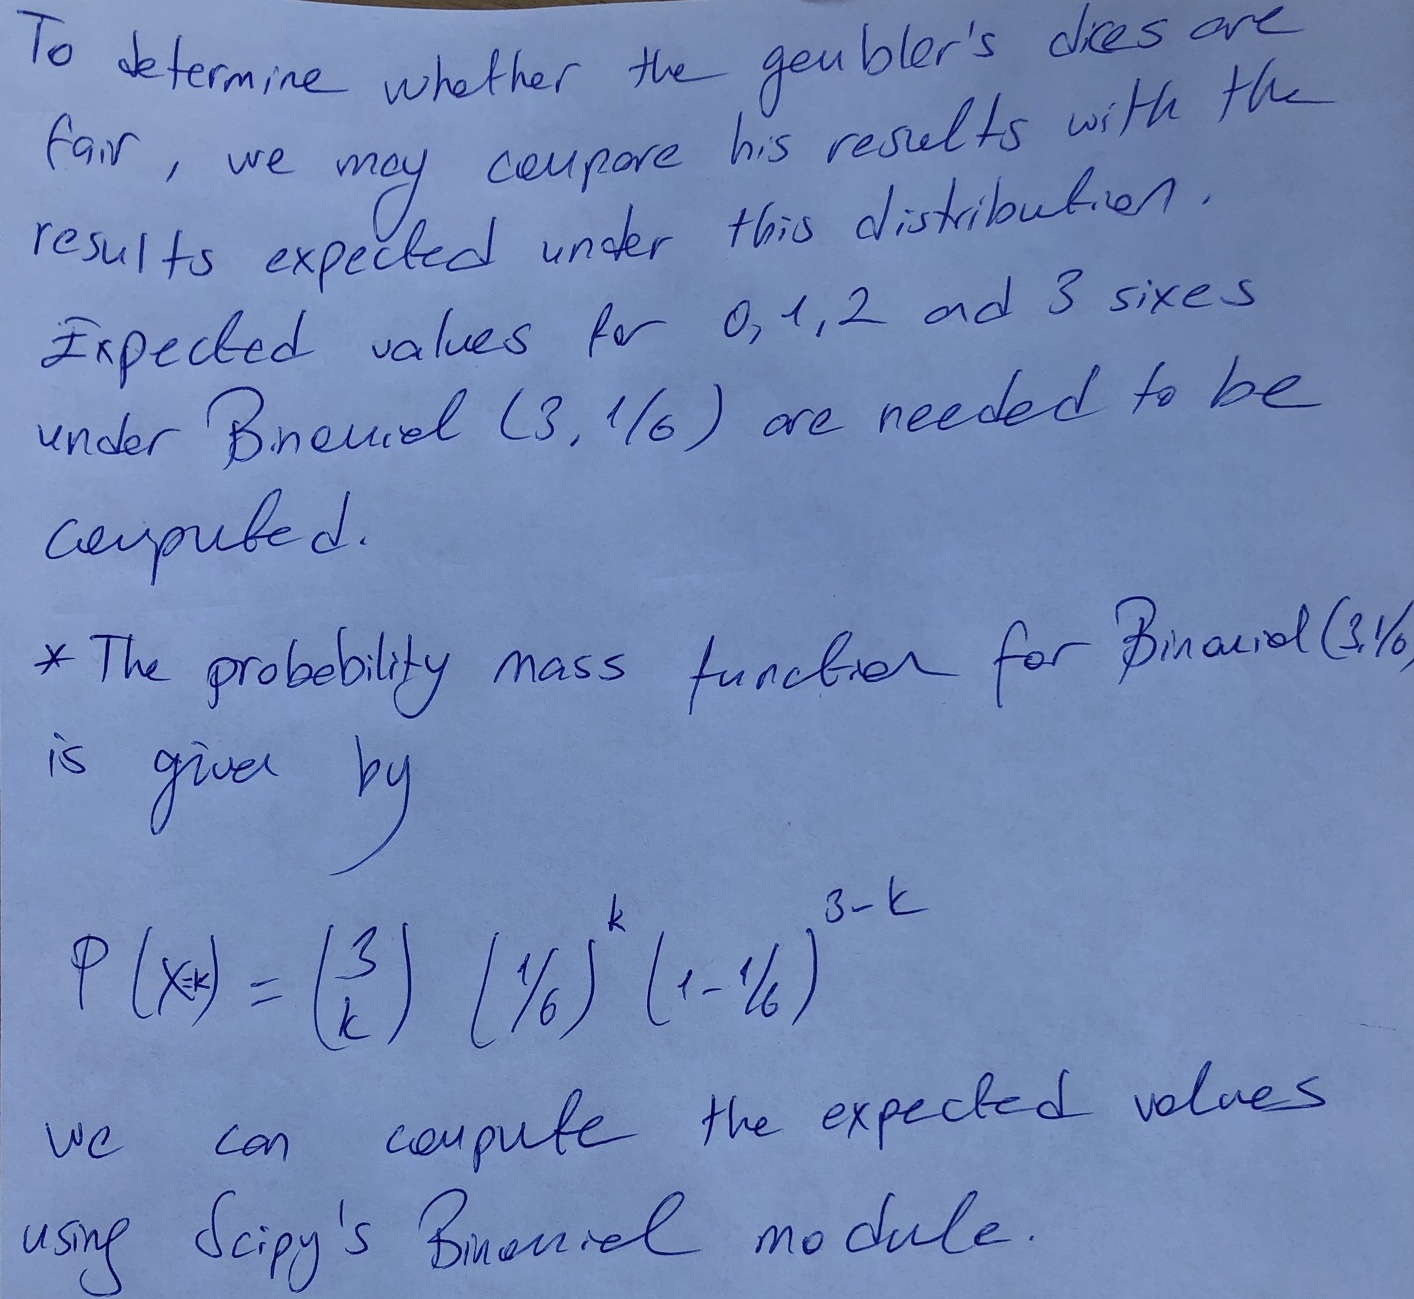 To determine whether the geubler's dices are
fair, we may compare his results with the
results expected under this distribution.
Expected values for 0, 1, 2 and 3 sixes
under Binomial (3, 1/6) are needed to be
computed.
* The probebility mass function for Binomial (3, 1/6)
is given by
P(X=k) = (3 k) (1/6)^k (1-1/6)^3-k
we can compute the expected values
using Scipy's Binomial module.